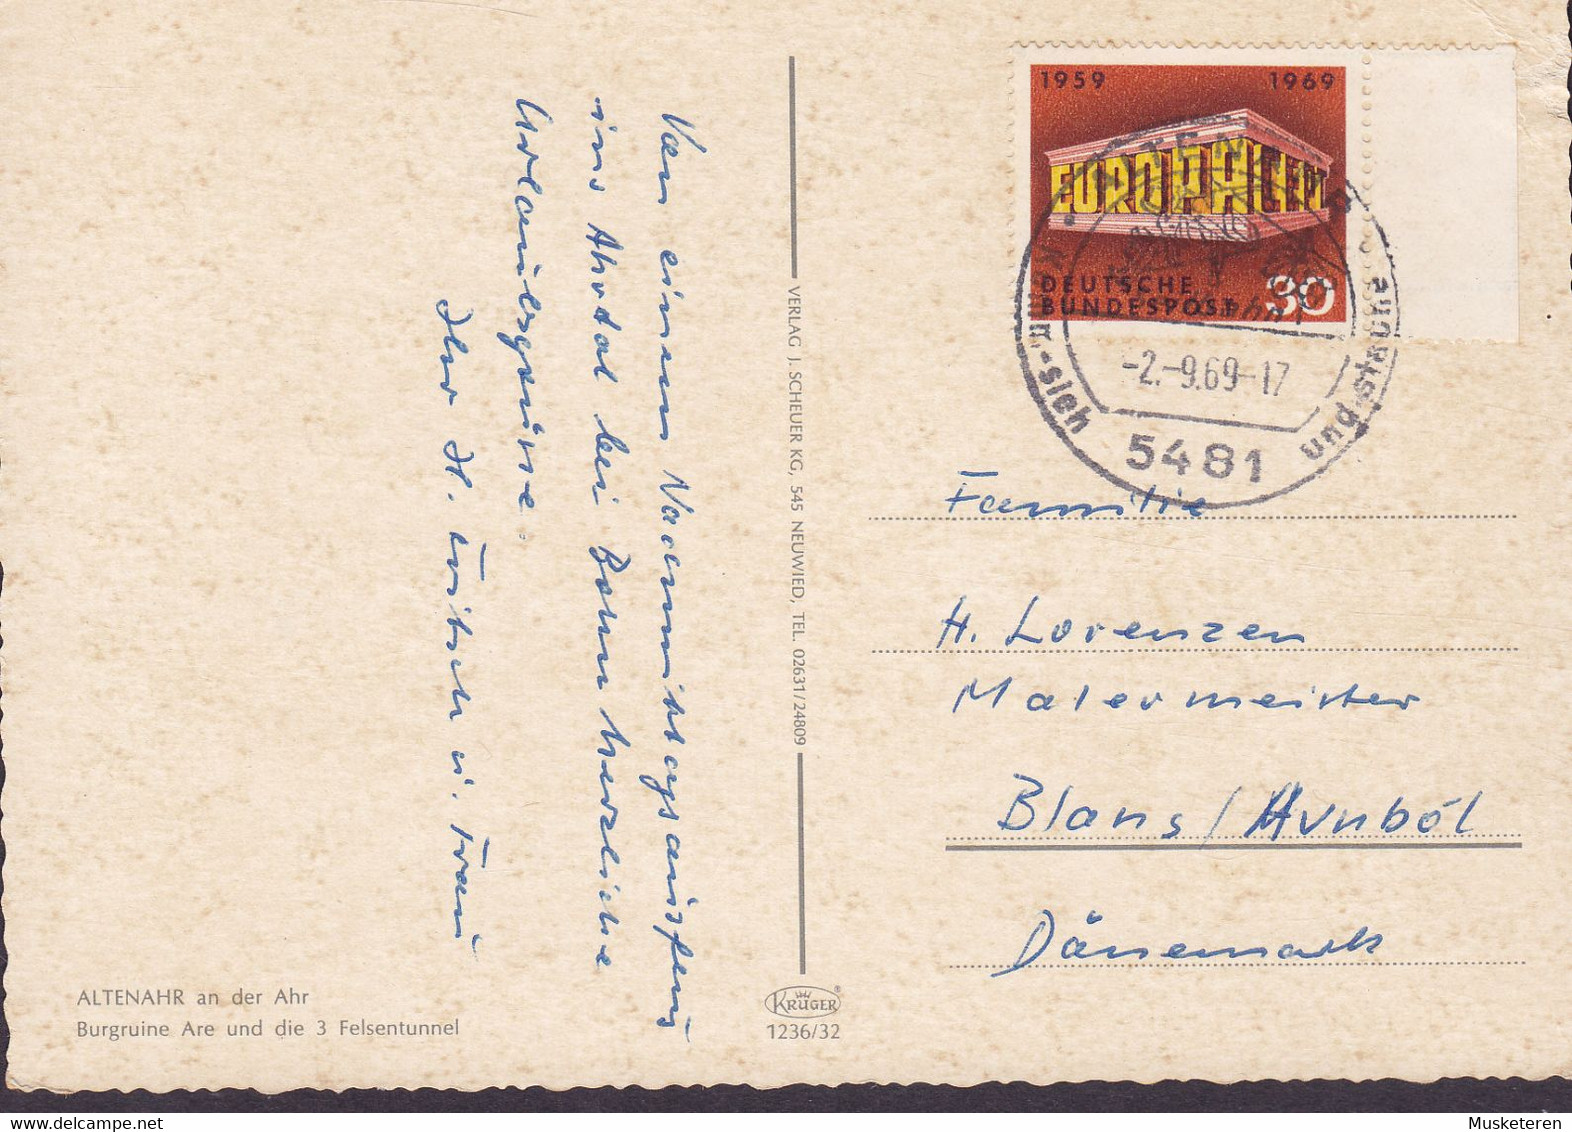 Von einem Nachmittagsausflug
ins Ahrtal bei Bonn herzliche
Urlaubsgrüsse.
Ihr H. Fritsch u. Frau
ALTENAHR an der Ahr
Burgruine Are und die 3 Felsentunnel
VERLAG J. SCHEUER KG, 545 NEUWIED, TEL. 02631/24809
KRÜGER
1236/32
1959 1969
EUROPA CEPT
DEUTSCHE
BUNDESPOST 30
ALTENAHR
-2.-9.69-17
5481
und staune
Familie
H. Lorenzen
Malermeister
Blans/Avnböl
Dänemark
delcampe.net
Musketeren